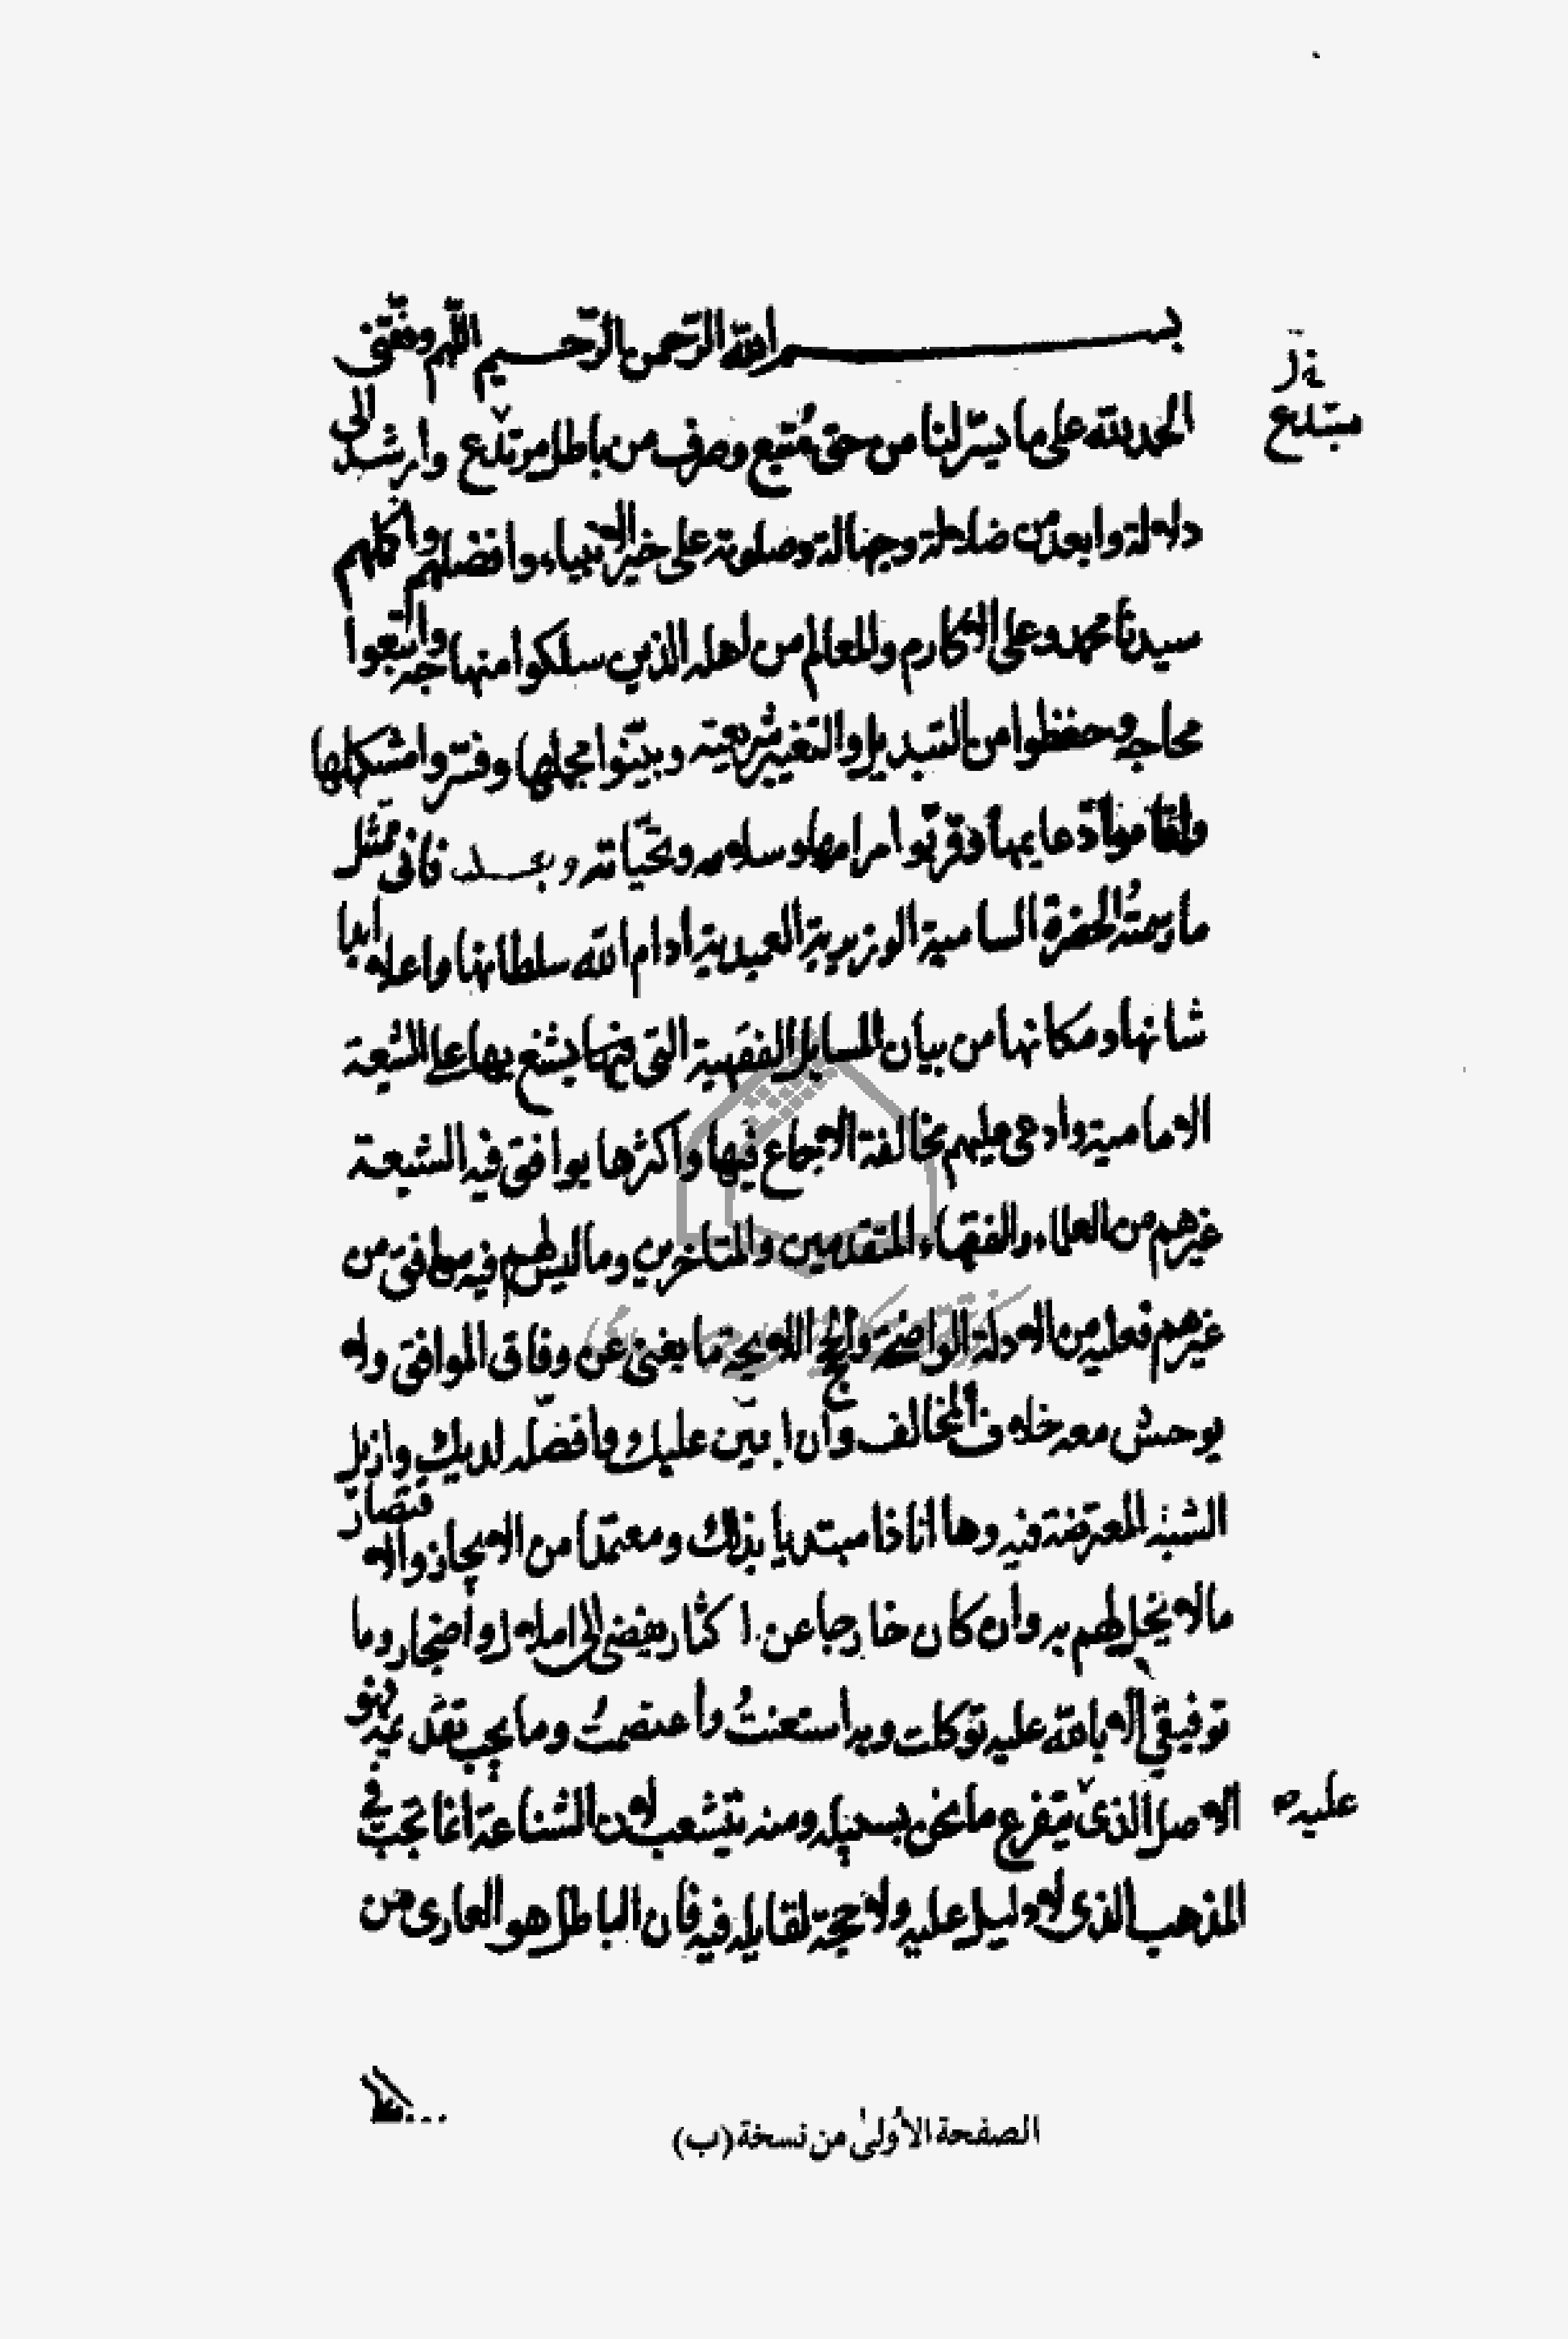 بسم الله الرحمن الرحيم اللهم وفقني
الحمد لله على ما يسّر لنا من حق مُتبع وصرف من باطل مرتدع وارشد الى
مبتدع
دلالة وابعد من ضلالة وجهالة وصلوته على خير الانبياء وافضلهم واكملهم
سيدنا محمد وعلى الاكارم والمعالم من اهله الذين سلكوا منهاجه واتبعوا
محاجه وحفظوا من التبديل والتغيير شريعته وبيّنوا مجملها وفسّروا مشكلها
دعايمها وقربّوا مرامها وسلامه وتحيّاته وبعد فانى ممتثل
ما رسمتهُ الحضرة السامية الوزيرية العميدية ادام الله سلطانها واعلا ابدا
شانها ومكانها من بيان المسايل الفقهية التى يشنع بها على الشيعة
الامامية وادعى عليهم مخالفة الاجماع فيها واكثرها يوافق فيه الشيعة
غيرهم من العلماء والفقهاء المتقدمين والمتاخرين وما ليس لهم فيه موافق من
غيرهم فعليه من الادلة الواضحة والحجج اللايحة ما يغنى عن وفاق الموافق ولا
يوحش معه خلاف المخالف وأن ابيّن عليك وافضّله لديك وازيل
الشبه المعترضة فيه وها انا ذا مبتديا بذلك ومعتمدا من الايجاز والاقتصار
ما لا يخل لهم به وان كان خارجا عن اكثار يفضى الى املال او اضجار وما
توفيقي الا بالله عليه توكلت وبه استعنتُ واعتصمتُ وما يجب تقديمه
الاصل الذى يتفرع ما نحن بسبيله ومنه يتشعب لان الشناعة انما تجب في
عليه صح
المذهب الذى لا دليل عليه ولا حجة لقايله فيه فان الباطل هو العارى من
الصفحة الأولىٰ من نسخة (ب)